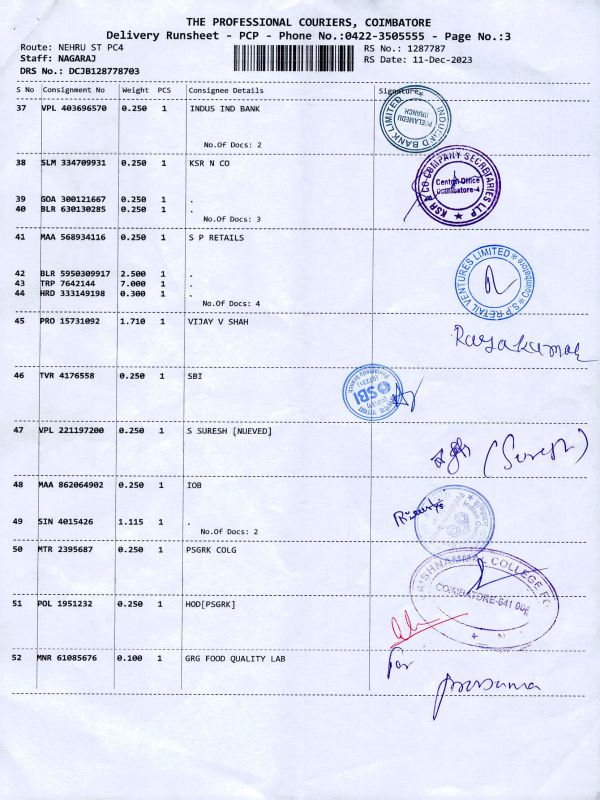 THE PROFESSIONAL COURIERS, COIMBATORE
Delivery Runsheet - PCP - Phone No.:0422-3505555 - Page No.:3
Route: NEHRU ST PC4
RS No.: 1287787
Staff: NAGARAJ
RS Date: 11-Dec-2023
DRS No.: DCJB128778703
S No Consignment No Weight PCS Consignee Details Signature
37 VPL 403696570 0.250 1 INDUS IND BANK
No.Of Docs: 2
INDUSIND BANK LIMITED
PEELAMEDU
BRANCH
38 SLM 334709931 0.250 1 KSR N CO
39 GOA 300121667 0.250 1 .
40 BLR 630130285 0.250 1 .
No.Of Docs: 3
KSR & CO COMPANY SECRETARIES LLP
Coimbatore-4
41 MAA 568934116 0.250 1 S P RETAILS
42 BLR 5950309917 2.500 1 .
43 TRP 7642144 7.000 1 .
44 HRD 333149198 0.300 1 .
No.Of Docs: 4
S.P RETAIL VENTURES LIMITED
Coimbatore
45 PRO 15731092 1.710 1 VIJAY V SHAH
46 TVR 4176558 0.250 1 SBI
SBI
47 VPL 221197200 0.250 1 S SURESH [NUEVED]
(Suresh)
48 MAA 862064902 0.250 1 IOB
49 SIN 4015426 1.115 1 .
No.Of Docs: 2
50 MTR 2395687 0.250 1 PSGRK COLG
COIMBATORE-641 004
51 POL 1951232 0.250 1 HOD[PSGRK]
52 MNR 61085676 0.100 1 GRG FOOD QUALITY LAB
For